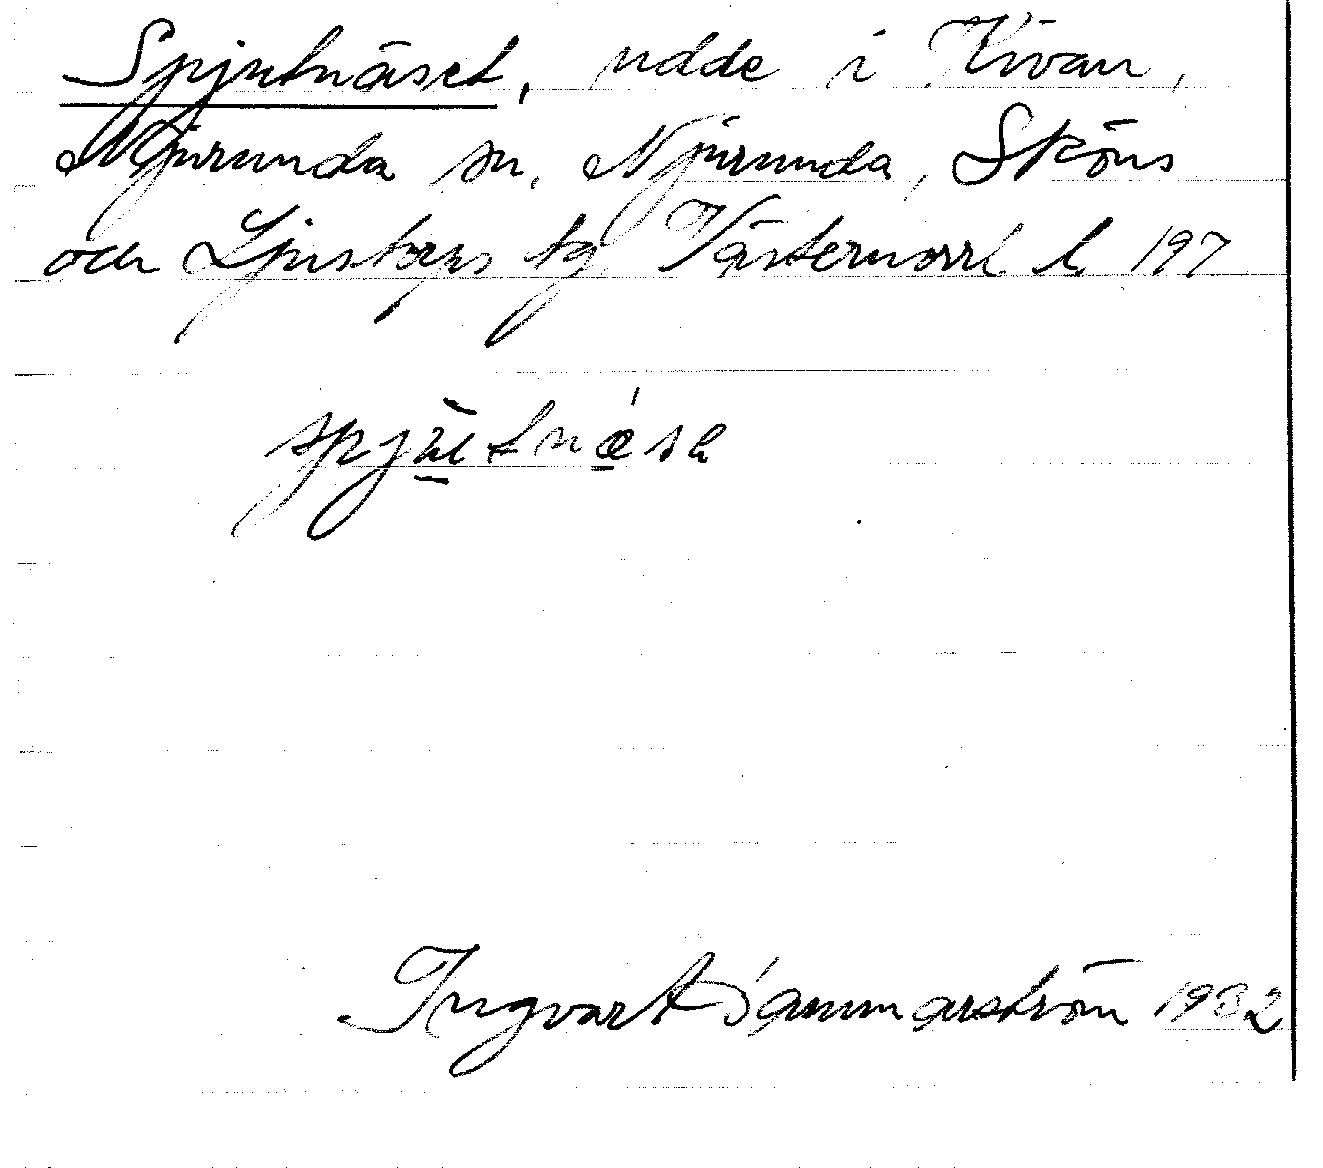 Spjutnäset, udde i
Njurunda sn, Njurunda, Sköns
och Ljustorps tg Västernorrl l. 197
Ingvar Hammarström 1932